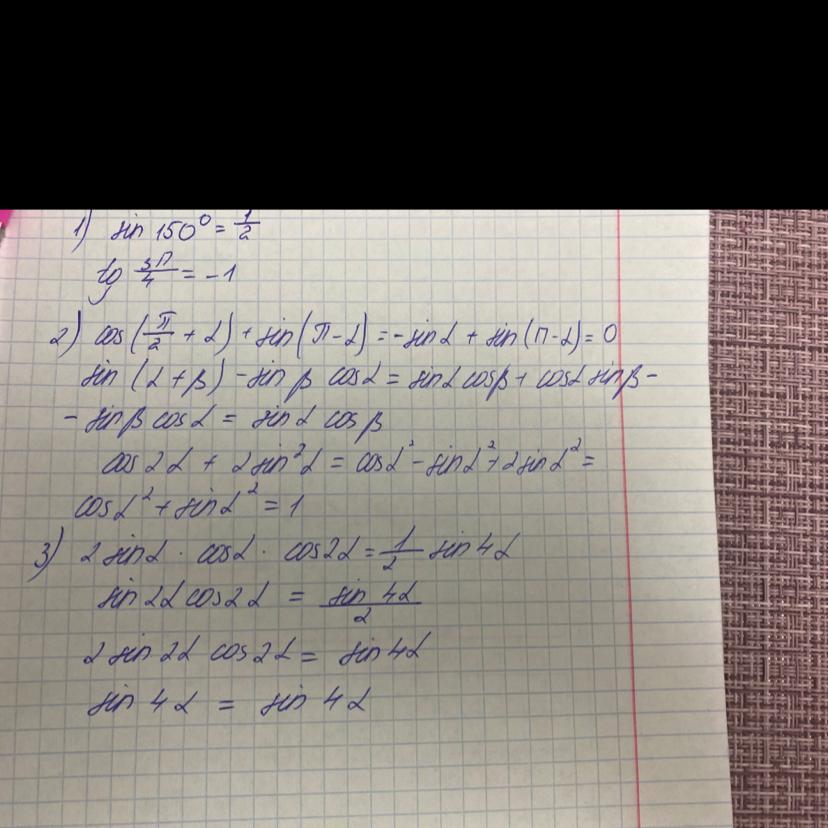 1) sin 150° = 1/2
tg 3π/4 = -1
2) cos(π/2 + α) + sin(π-α) = -sinα + sin(π-α) = 0
sin (α+β) - sin β cosα = sinα cosβ + cosα sinβ -
- sinβ cosα = sinα cosβ
cos2α + 2sin²α = cosα² - sinα² + 2sinα² =
cosα² + sinα² = 1
3) 2 sinα · cosα · cos2α = 1/2 sin4α
sin 2α cos2α = sin 4α/2
2 sin 2α cos2α = sin4α
sin 4α = sin 4α